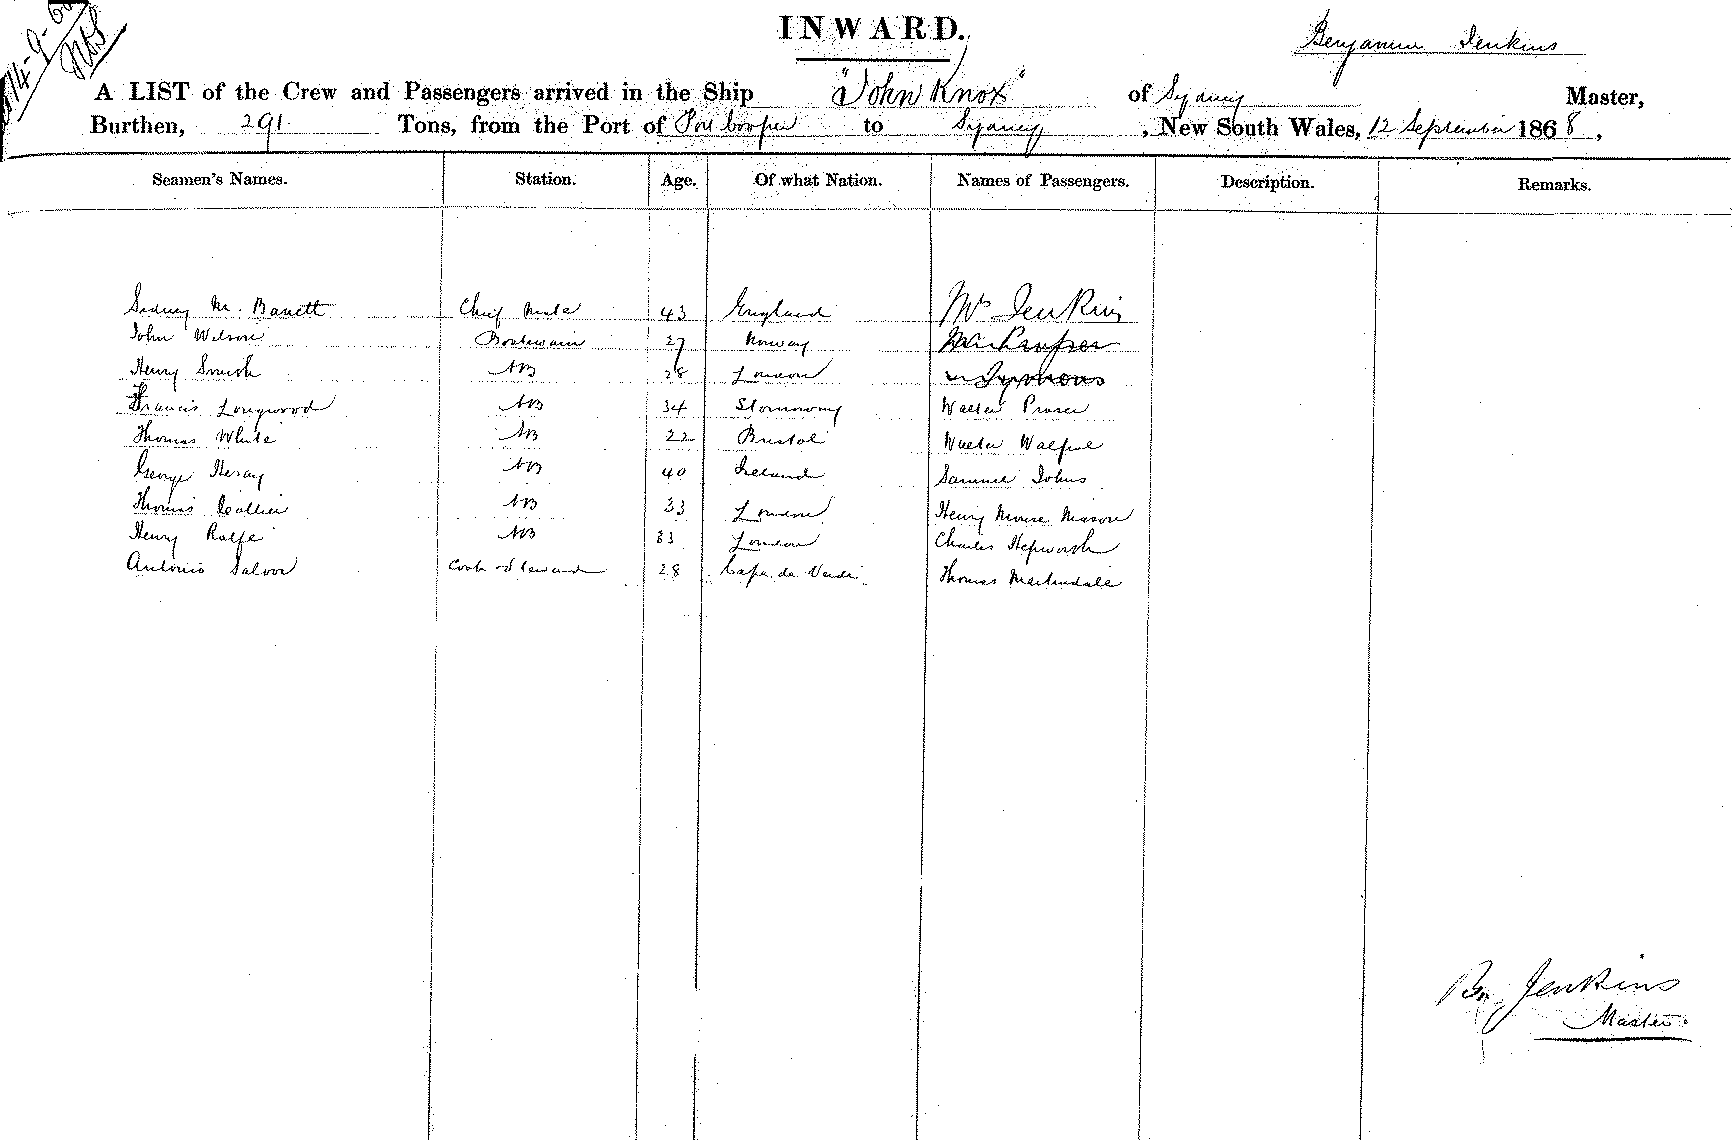 14-9-68
INWARD.
Benjamin Jenkins
A LIST of the Crew and Passengers arrived in the Ship "John Knox" of Sydney Master,
Burthen, 291 Tons, from the Port of Port Cooper to Sydney, New South Wales, 12 September 1868,
Seamen's Names. Station. Age. Of what Nation. Names of Passengers. Description. Remarks.
Sidney M. Barrett Chief Mate 43 England Mrs Jenkins
John Wilson Boatswain 27 Norway
Henry Smith AB 28 London Symons
Francis Longwood AB 34 Stornoway Walter
Thomas White AB 22 Bristol Walter
George AB 40 Ireland Samuel Johns
Thomas Collier AB 33 London Henry Mason
Henry Rolfe AB 33 London Charles Hepworth
Antonio Cook & Steward 28 Cape de Verde Thomas Martindale
Bn. Jenkins
Master